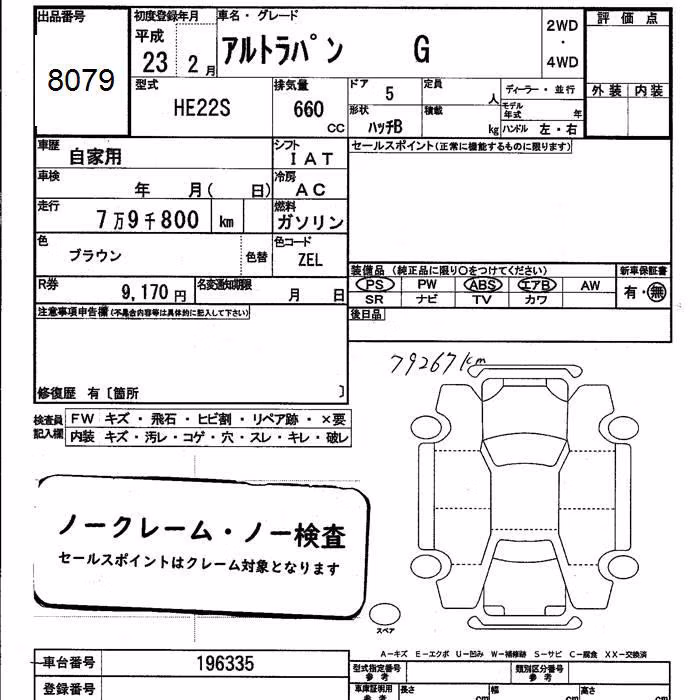 出品番号
8079
初度登録年月
平成
23 2月
車名・グレード
アルトラパン G
2WD
・
4WD
評価点
外装 内装
型式
HE22S
排気量
660
CC
ドア 5
形状 ハッチB
定員 人
積載 kg
ディーラー・並行
モデル年式 年
ハンドル 左・右
車歴 自家用
シフト IAT
セールスポイント(正常に機能するものに限ります)
車検 年 月( 日)
冷房 AC
走行 7万9千800 km
燃料 ガソリン
色 ブラウン 色替
色コード ZEL
R券 9,170円
名変通知期限 月 日
装備品 (純正品に限り○をつけてください)
新車保証書
PS PW ABS エアB AW
有・無
SR ナビ TV カワ
後日品
注意事項申告欄(不具合内容等は具体的に記入して下さい)
79267km
修復歴 有〔箇所 〕
検査員記入欄
FW キズ・飛石・ヒビ割・リペア跡・×要
内装 キズ・汚レ・コゲ・穴・スレ・キレ・破レ
ノークレーム・ノー検査
セールスポイントはクレーム対象となります
スペア
A―キズ E―エクボ U―凹み W―補修跡 S―サビ C―腐食 XX―交換済
車台番号 196335
型式指定番号 参考
類別区分番号 参考
登録番号
車庫証明用 参考
長さ cm
幅 cm
高さ cm